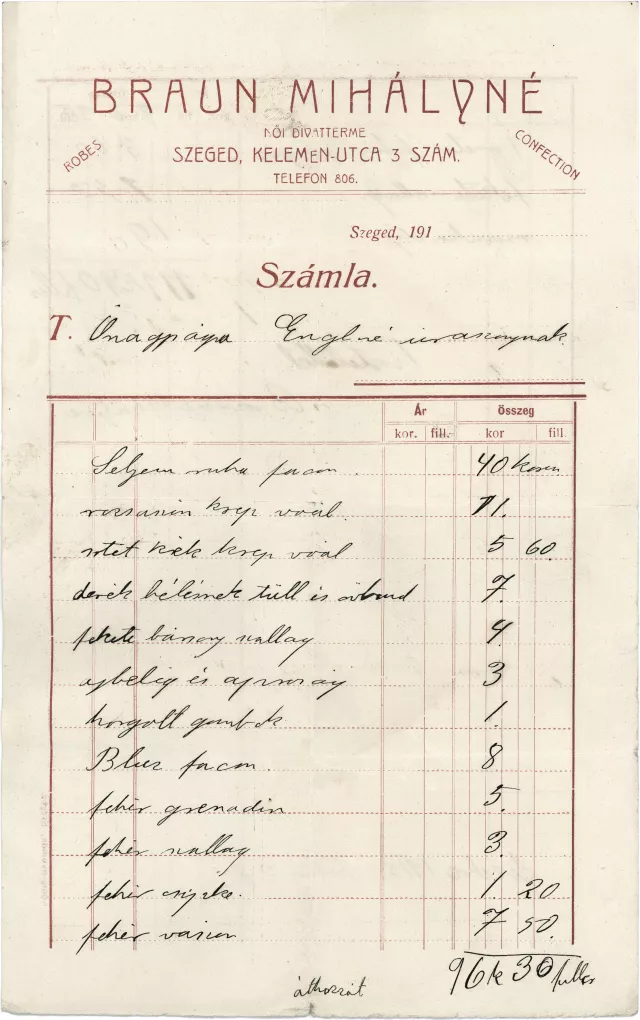 BRAUN MIHÁLYNÉ
NŐI DIVATTERME
ROBES
CONFECTION
SZEGED, KELEMEN-UTCA 3 SZÁM.
TELEFON 806.
Szeged, 191
Számla.
T. Őnagysága Englné urasszonynak
Ár összeg
kor. fill. kor fill.
Selyem ruha facon 40 koron
rozsaszin krep voál. 11.
sötét kék krep voál 5 60
derék bélésnek tüll és övband 7.
fekete bársony szallag 4.
ujbélés és apróság 3
horgolt gombok 1.
Bluz facon. 8
fehér grenadin 5.
fehér szallag 3.
fehér csipke. 1. 20
fehér vászon 7 50.
96 k 30 fuller
áthozat